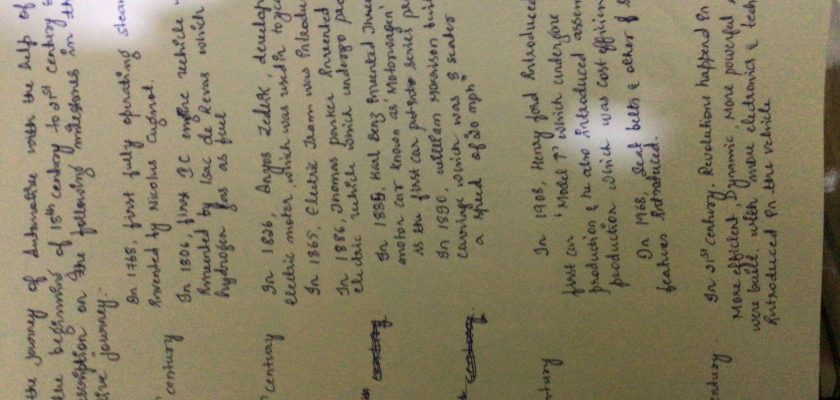 the journey of Automotive with the help of
the beginning of 18th century to 21st century
scription on the following milestones in th
tive journey:-
In 1768, first fully operating steam
Invented by Nicolus Cugnot.
century
In 1806, first IC engine vehicle
Invented by Isac de Revas which
hydrogen gas as fuel
century
In 1826, Anyos Jedlik, develop
electric motor, which was used in
In 1865, Electric Tram was Introdu
In 1886, Thomas parker Invented
Electric vehicle which undergo
In 1885, Karl Benz Invented
motor car known as 'Motorwagen'
is the first car put into series
In 1890, william Morrison
carriage which was 8 seater
a speed of 20 mph"
ntury
In 1908, Henry ford Introduced
first car 'Model T' which undergone
production & he also introduced assem
production which was cost efficien
In 1968 Seat belts & other
features Introduced.
entury.
In 21st century, Revolutions happend In
More efficient Dynamic, More powerful
were built, with more electronics & tech
Introduced In the vehicle